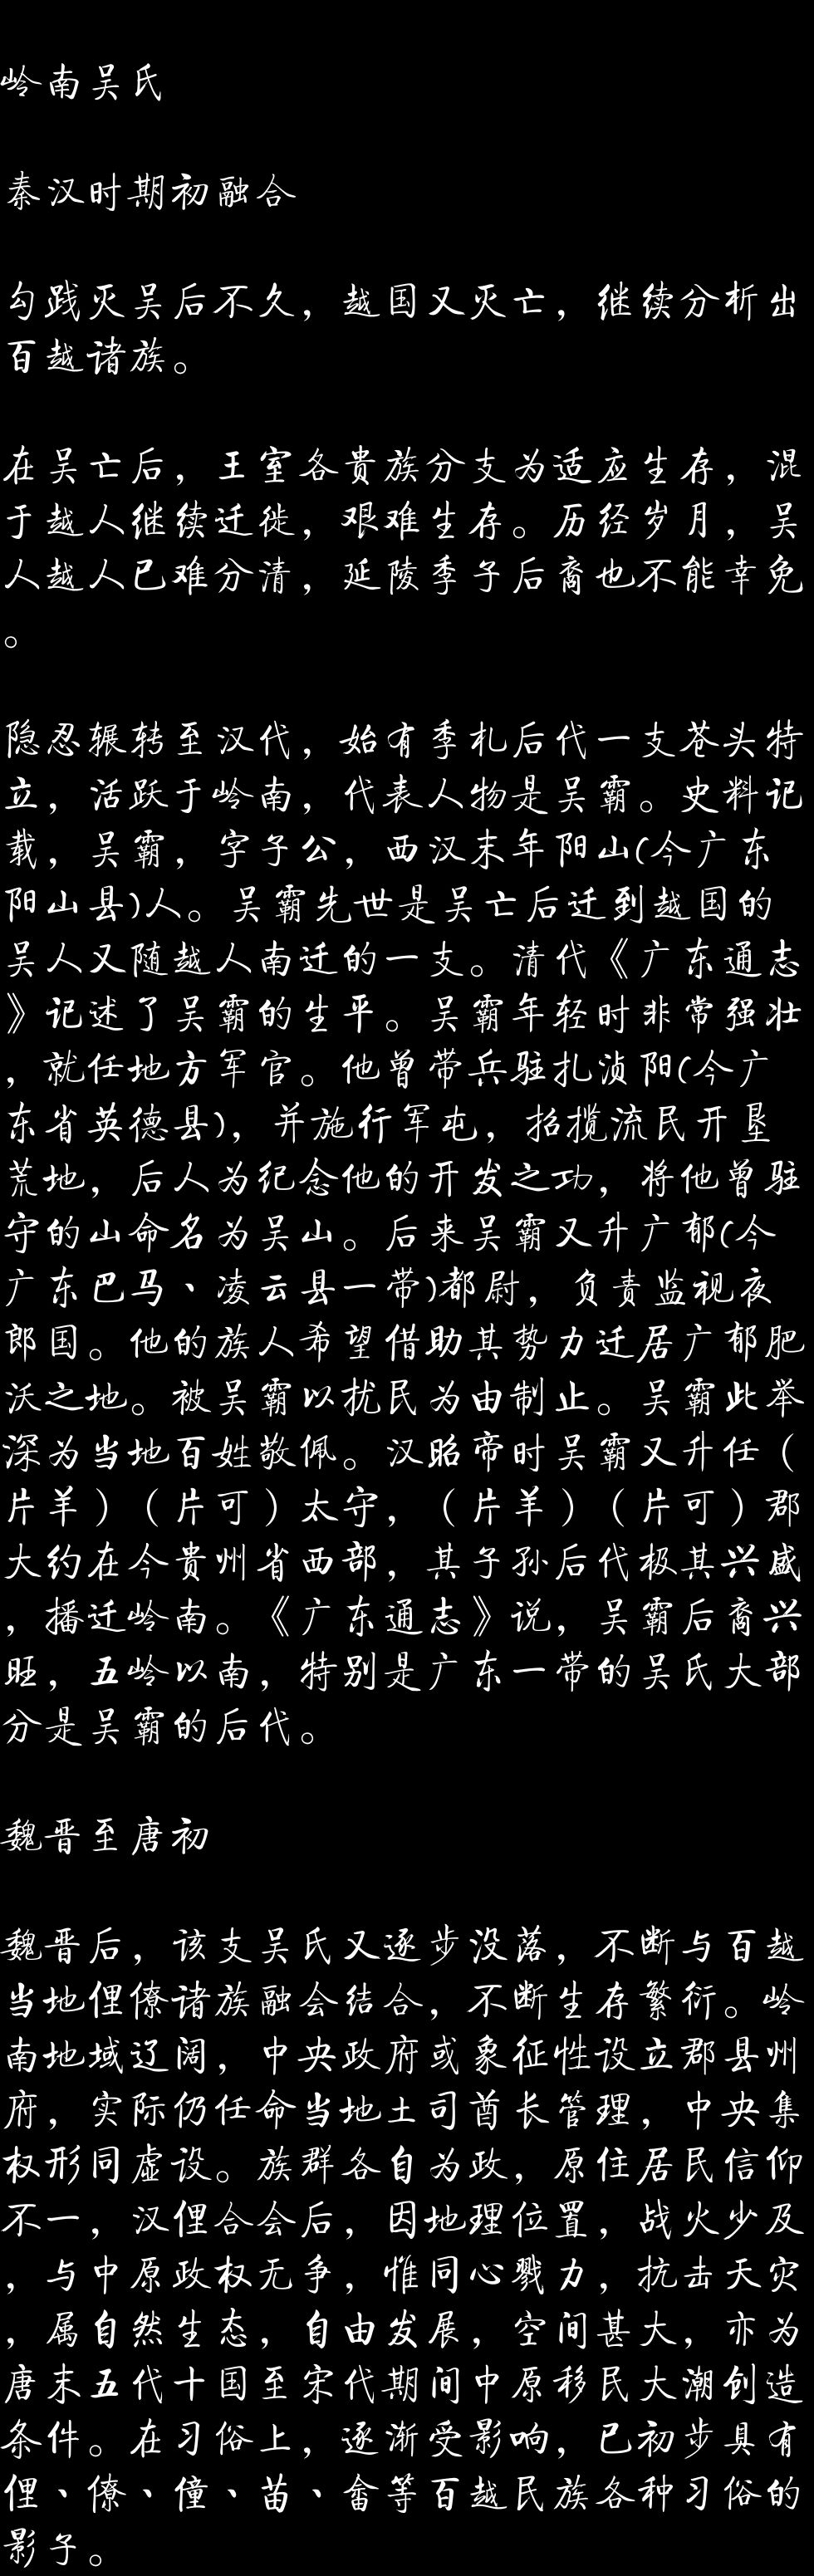 岭南吴氏
秦汉时期初融合
勾践灭吴后不久，越国又灭亡，继续分析出
百越诸族。
在吴亡后，王室各贵族分支为适应生存，混
于越人继续迁徙，艰难生存。历经岁月，吴
人越人已难分清，延陵季子后裔也不能幸免
。
隐忍辗转至汉代，始有季札后代一支苍头特
立，活跃于岭南，代表人物是吴霸。史料记
载，吴霸，字子公，西汉末年阳山(今广东
阳山县)人。吴霸先世是吴亡后迁到越国的
吴人又随越人南迁的一支。清代《广东通志
》记述了吴霸的生平。吴霸年轻时非常强壮
，就任地方军官。他曾带兵驻扎浈阳(今广
东省英德县)，并施行军屯，招揽流民开垦
荒地，后人为纪念他的开发之功，将他曾驻
守的山命名为吴山。后来吴霸又升广郁(今
广东巴马、凌云县一带)都尉，负责监视夜
郎国。他的族人希望借助其势力迁居广郁肥
沃之地。被吴霸以扰民为由制止。吴霸此举
深为当地百姓敬佩。汉昭帝时吴霸又升任（
片羊）（片可）太守，（片羊）（片可）郡
大约在今贵州省西部，其子孙后代极其兴盛
，播迁岭南。《广东通志》说，吴霸后裔兴
旺，五岭以南，特别是广东一带的吴氏大部
分是吴霸的后代。
魏晋至唐初
魏晋后，该支吴氏又逐步没落，不断与百越
当地俚僚诸族融会结合，不断生存繁衍。岭
南地域辽阔，中央政府或象征性设立郡县州
府，实际仍任命当地土司酋长管理，中央集
权形同虚设。族群各自为政，原住居民信仰
不一，汉俚合会后，因地理位置，战火少及
，与中原政权无争，惟同心戮力，抗击天灾
，属自然生态，自由发展，空间甚大，亦为
唐末五代十国至宋代期间中原移民大潮创造
条件。在习俗上，逐渐受影响，已初步具有
俚、僚、僮、苗、畲等百越民族各种习俗的
影子。